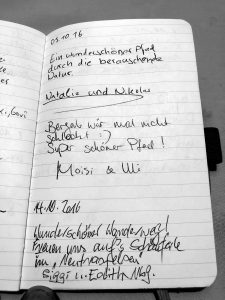 05.10.16
Ein wunderschöner Pfad
durch die berauschende
Natur.
Natalie und Nikolas
Bergab wir mal nicht
schlecht! :-)
Super schöner Pfad!
Moisi & Uli
11.10.2016
Wunderschöner Wanderweg!
freuen uns auf's
im
Siggi u. Edith